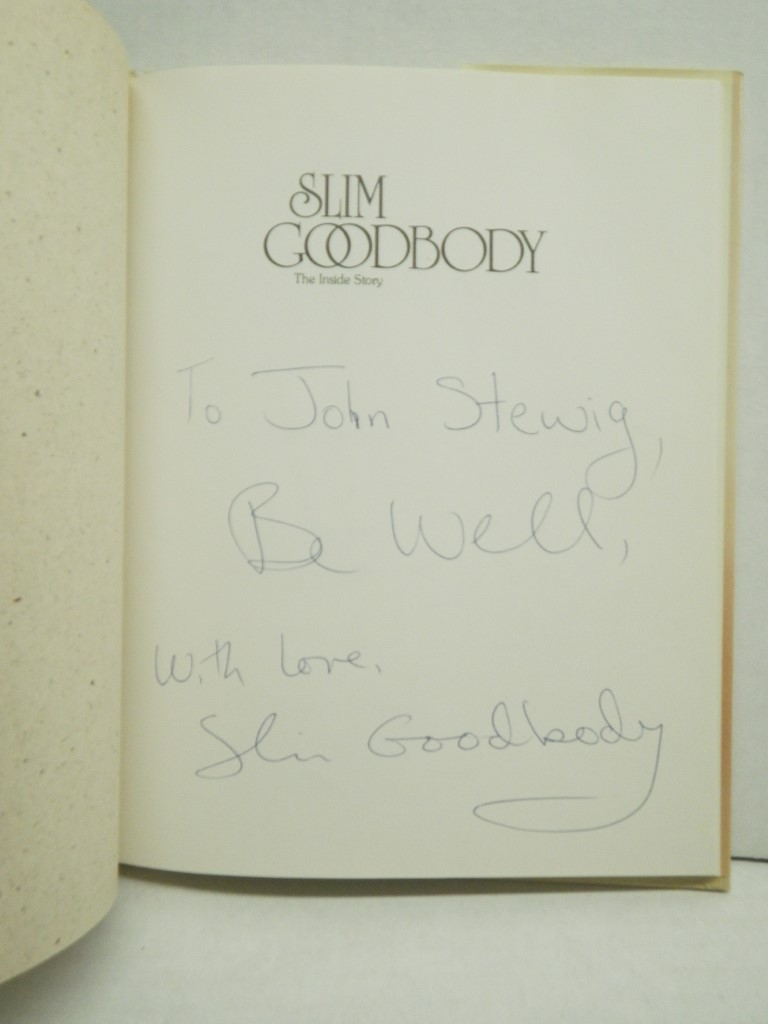 SLIM
GOODBODY
The Inside Story
To John Stewig,
Be Well,
With Love,
Slim Goodbody